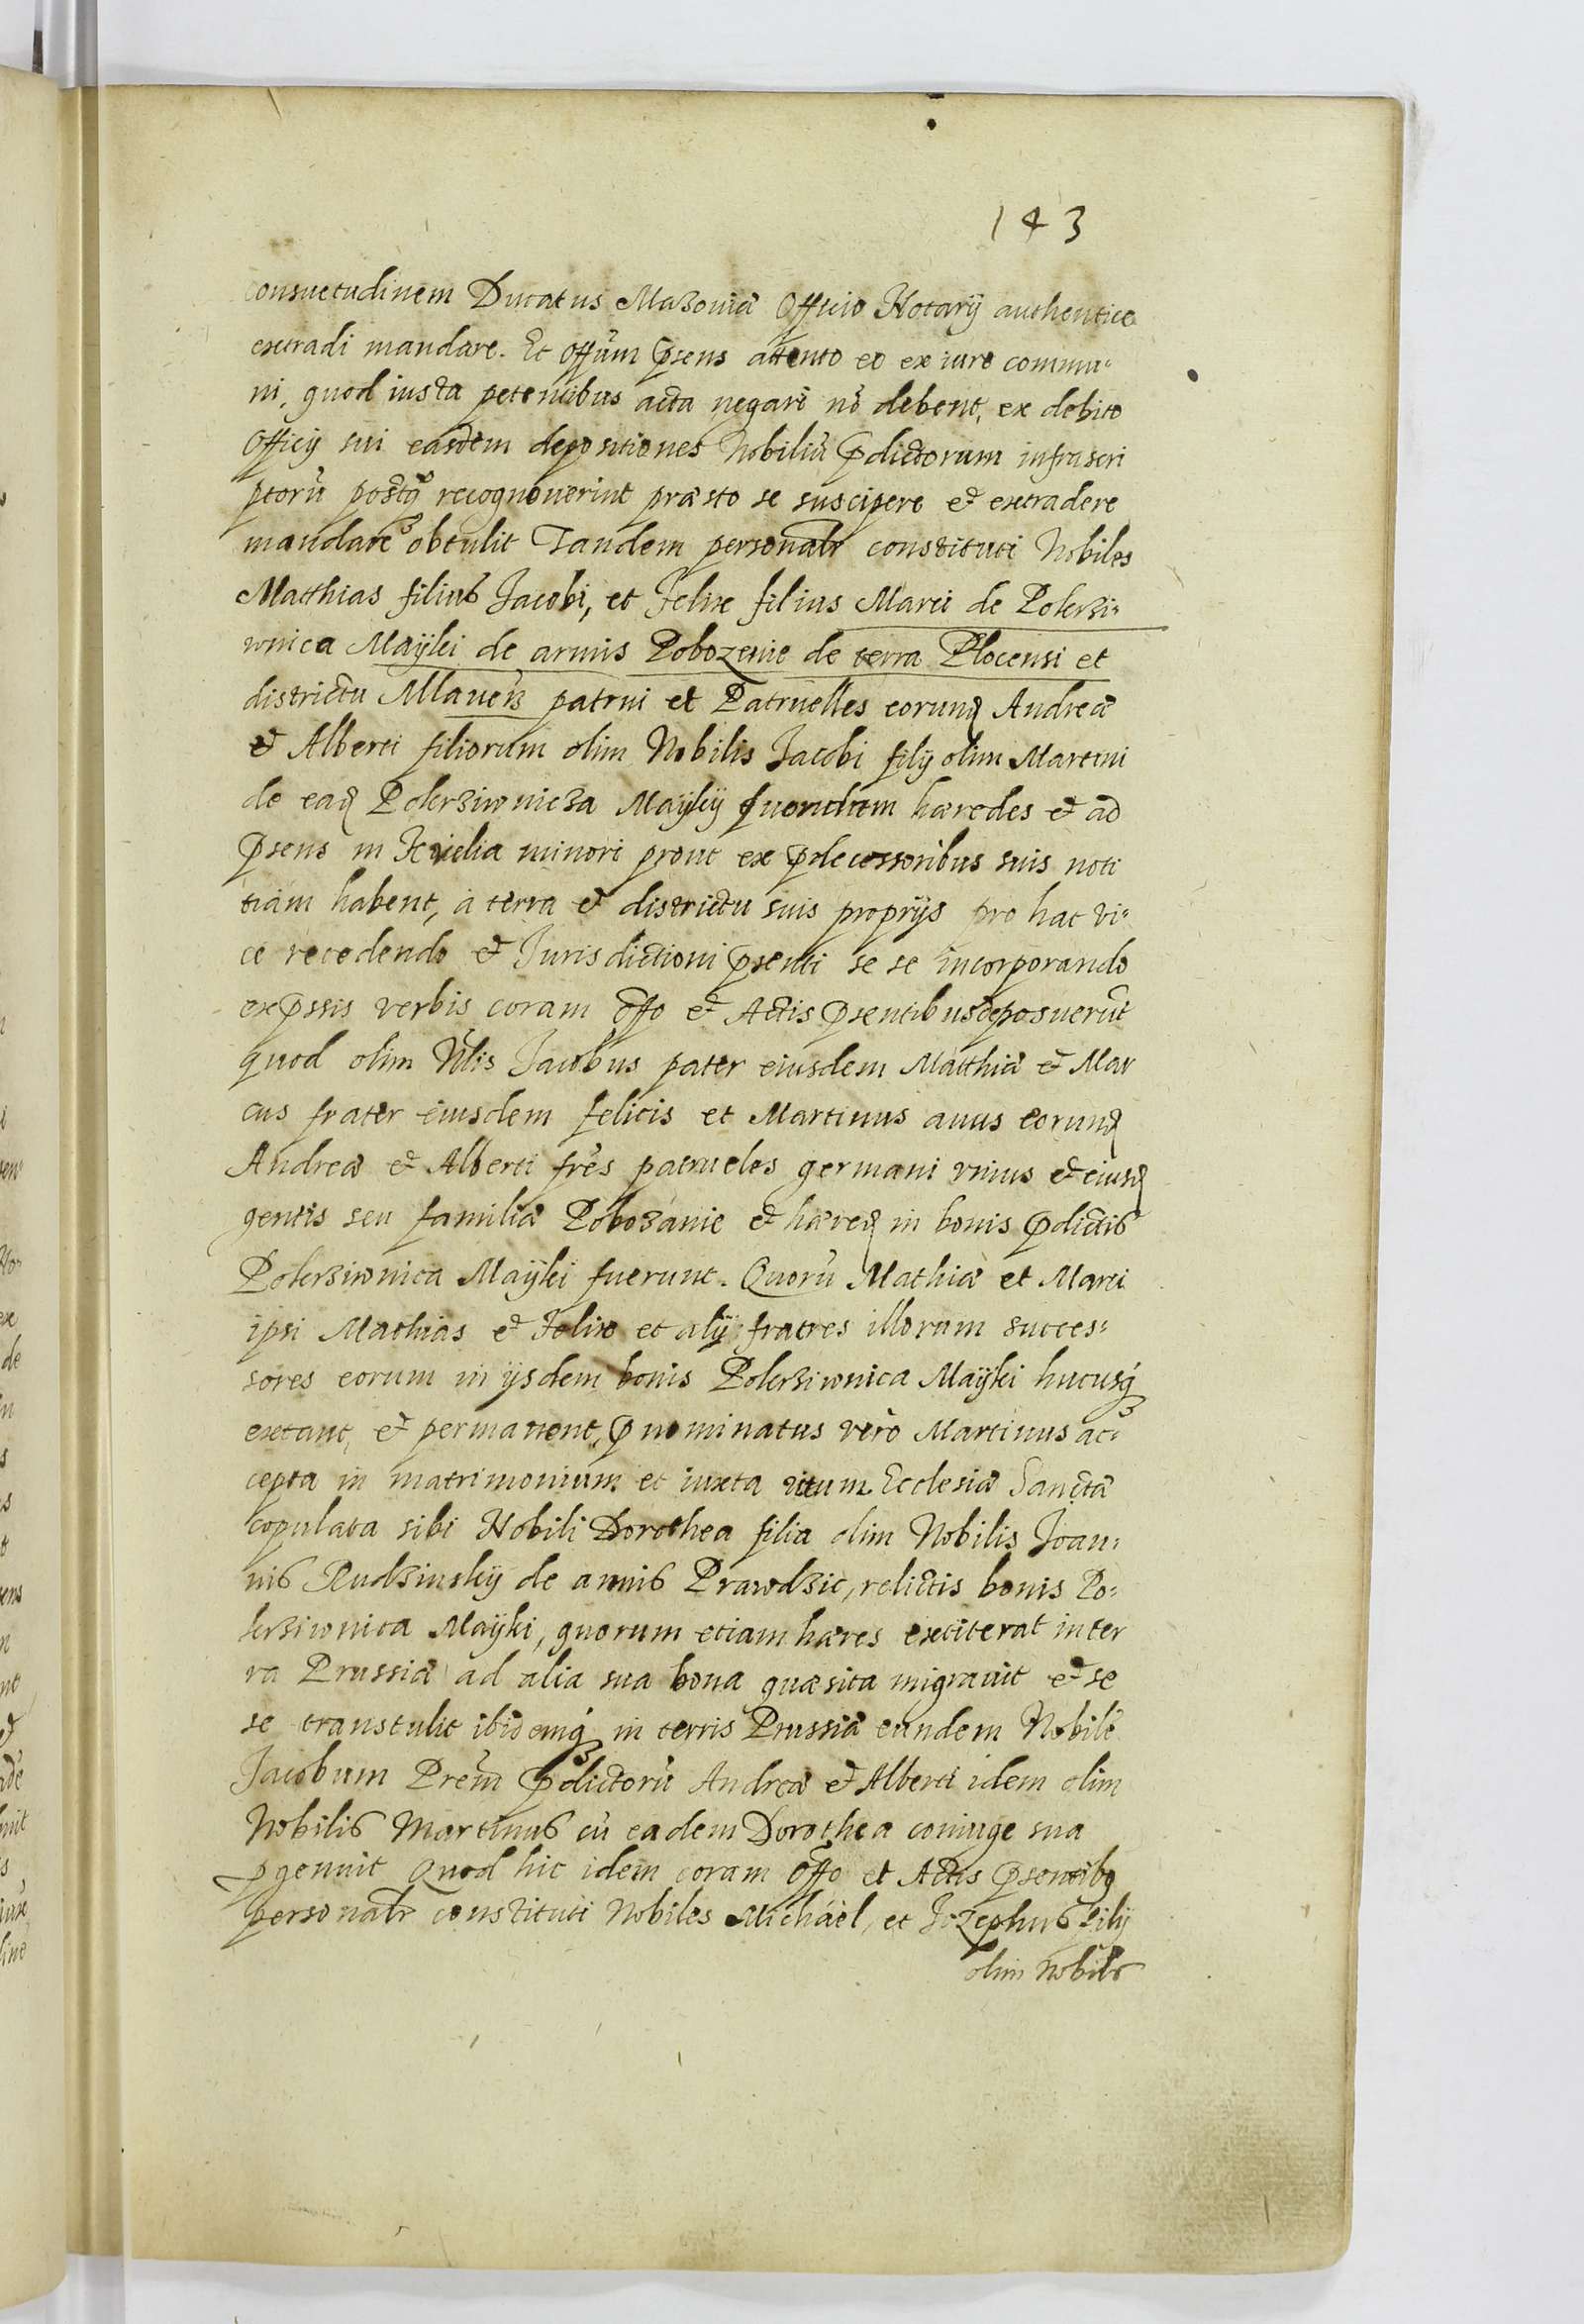 143
consuetudinem Ducatus Mazoviæ Officio Notarÿ authentice
extradi mandare. Et Offūm p̄sens attento eo ex iure commu-
ni, quod iusta petentibus acta negari nō debent, ex debito
Officÿ sui easdem depositiones Nobiliū p̄dictorum infrascri
ptorū postq̄ recognoverint præsto se suscipere et extradere
mandare obtulit Tandem personalr constituti Nobiles
Matthias filius Jacobi, et Felix filius Marci de Pokrzi-
wnica Maÿki de armis Pobozenie de terra Plocensi et
districtu Mlaueñ patrui et Patruelles eorund Andreæ
et Alberti filiorum olim Nobilis Jacobi filÿ olim Martini
de ead Pokrziwnicza Maÿkÿ hæredes et ad
p̄sens in minori prout ex p̄decessoribus suis noti
tiam habent, à terra et districtu suis proprÿs pro hac vi-
ce recedendo et Jurisdictioni p̄senti se se incorporando
exp̄ssis verbis coram Offo et Actis p̄sentibus deposuerūt
quod olim Nlis Jacobus pater eiusdem Matthiæ et Mar
cus frater eiusdem felicis et Martinus auus eorund
Andreæ et Alberti frēs patrueles germani vnius et eiusd
gentis seu familiæ Pobozanie et hæred in bonis p̄dictis
Pokrziwnica Maÿki fuerunt. Quorū Mathiæ et Marci
ipsi Mathias et Felix et alÿ fratres illorum succes-
sores eorum in ÿsdem bonis Pokrziwnica Maÿki hucusq́
extant, et permanent, p̄nominatus verò Martinus ac-
cepta in matrimonium et iuxta ritum Ecclesiæ Sanctæ
copulata sibi Nobili Dorothea filia olim Nobilis Joan-
nis Rudzinskÿ de armis Prawdzic, relictis bonis Po-
krziwnica Maÿki, quorum etiam hæres extiterat in ter
ra Prussiæ ad alia sua bona quæsita migrauit et se
se transtulit ibidemq́ in terris Prussiæ eundem Nobilē
Jacobum Prēm p̄dictorū Andreæ et Alberti idem olim
Nobilis Martinus cū eadem Dorothea coniuge sua
pgenuit Quod hic idem coram Offo et Actis p̄sentibq
personalr constituti Nobiles Michäel, et Jozephus filÿ
olim Nobilis